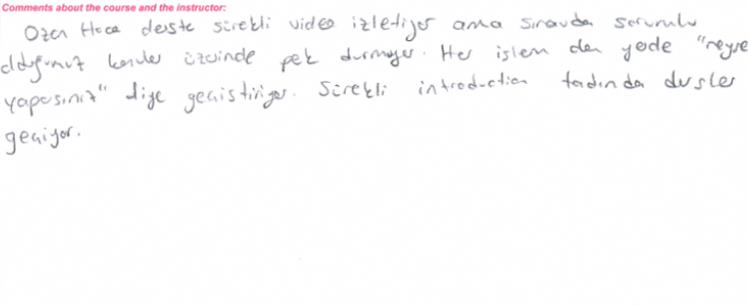 Comments about the course and the instructor:
Ozan Hoca derste sürekli video izletiyor ama sınavda sorumlu
olduğumuz konular üzerinde pek durmuyor. Her işlem den yede "neyse
yaparsınız" diye geçiştiriyor. Sürekli introduction tadında dersler
geçiyor.